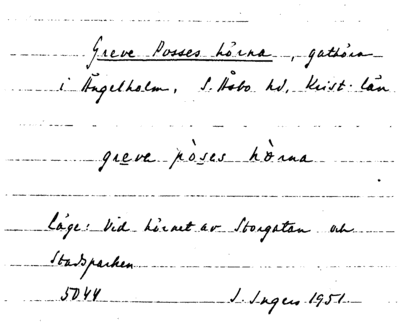 Greve Posses hörna, gathörn
i Ängelholm, S. Åsbo hd, Krist. län
greve pòses hö̀rna
läge: Vid hörnet av Storgatan och
Stadsparken
5044 S. Ingers 1951